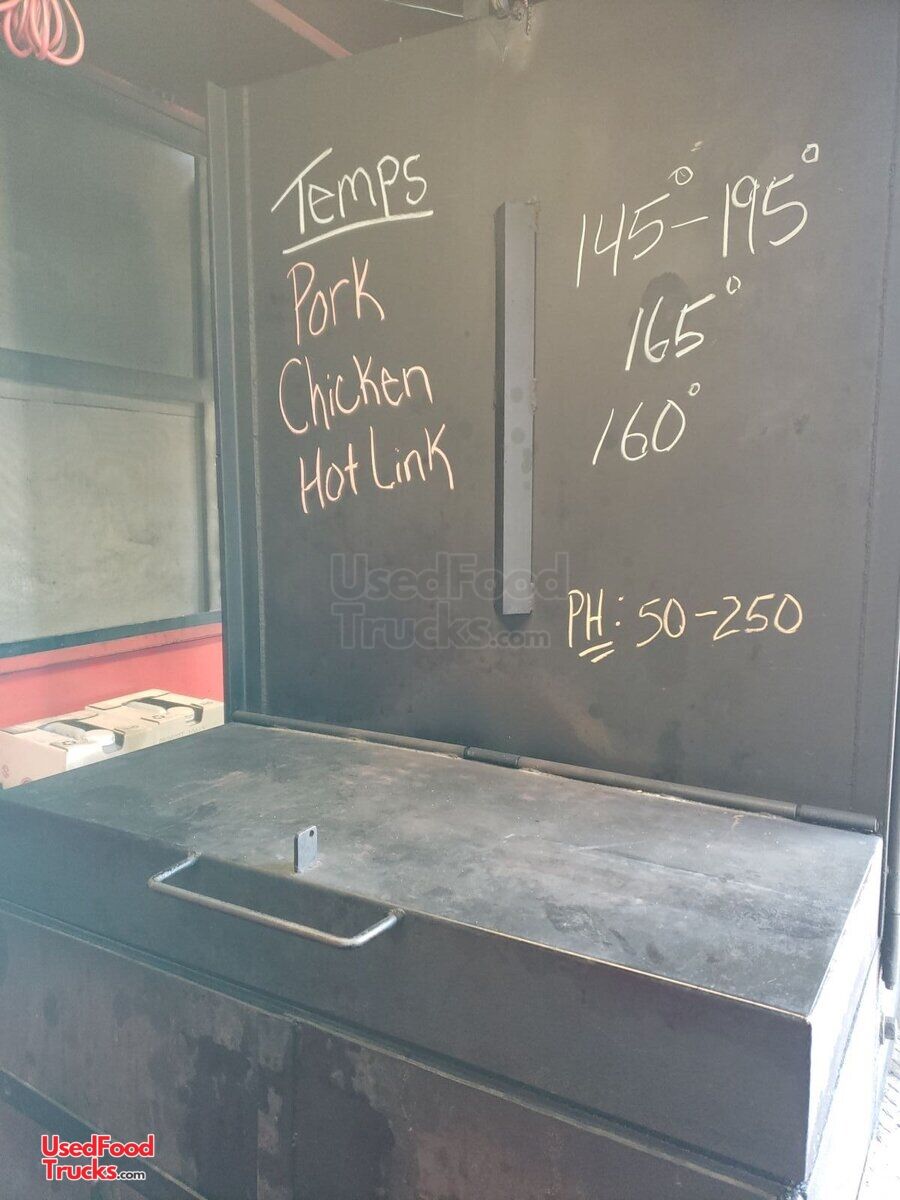 Temps
145° - 195°
Pork
165°
Chicken
160°
Hot Link
PH: 50-250
UsedFood
Trucks.com
UsedFood
Trucks.com